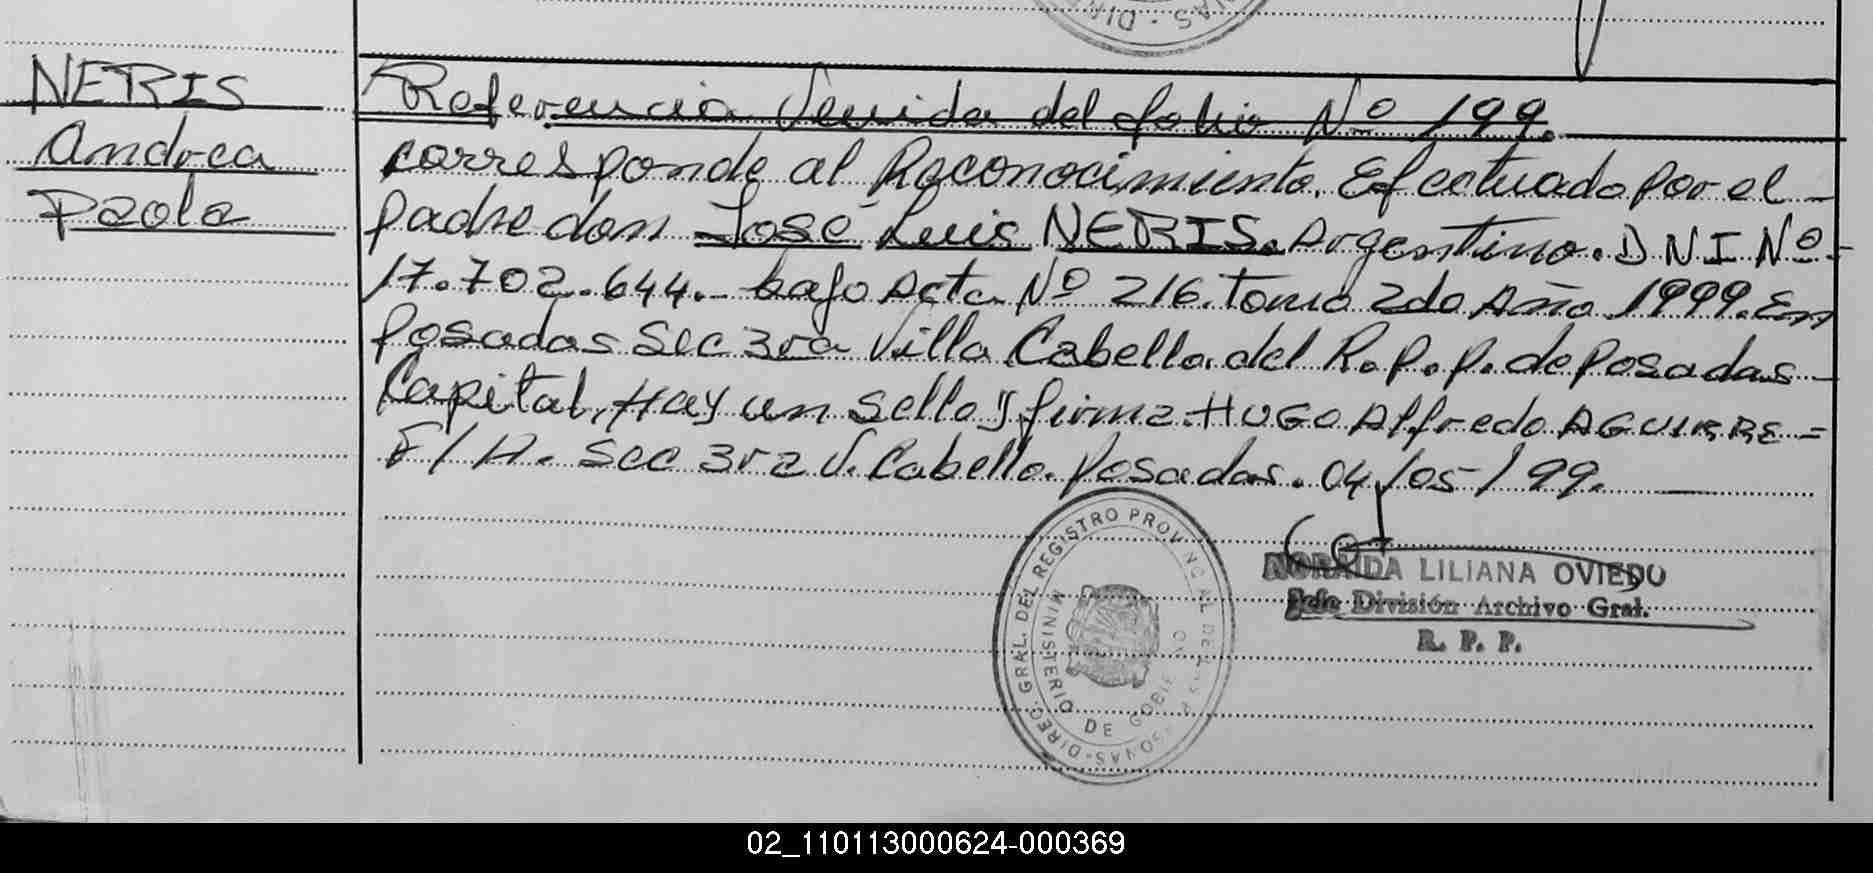 NERIS
Andrea
Paola
Referencia Venida del folio Nº 199.
corresponde al Reconocimiento. Efectuado por el -
padre don José Luis NERIS. Argentino. DNI Nº -
17.702.644. - bajo Acta Nº 216. Tomo 2do Año 1999. En
Posadas Sec 3ra Villa Cabello. del R.P.P. de Posadas -
Capital. Hay un sello y firma. HUGO Alfredo AGUIRRE =
F/A. Sec 3ra V. Cabello. Posadas. 04/05/99.
DIREC. GRAL. DEL REGISTRO PROVINCIAL DE LAS PERSONAS
MINISTERIO DE GOBIERNO
NORAIDA LILIANA OVIEDO
Jefe División Archivo Gral.
R. P. P.
02_110113000624-000369